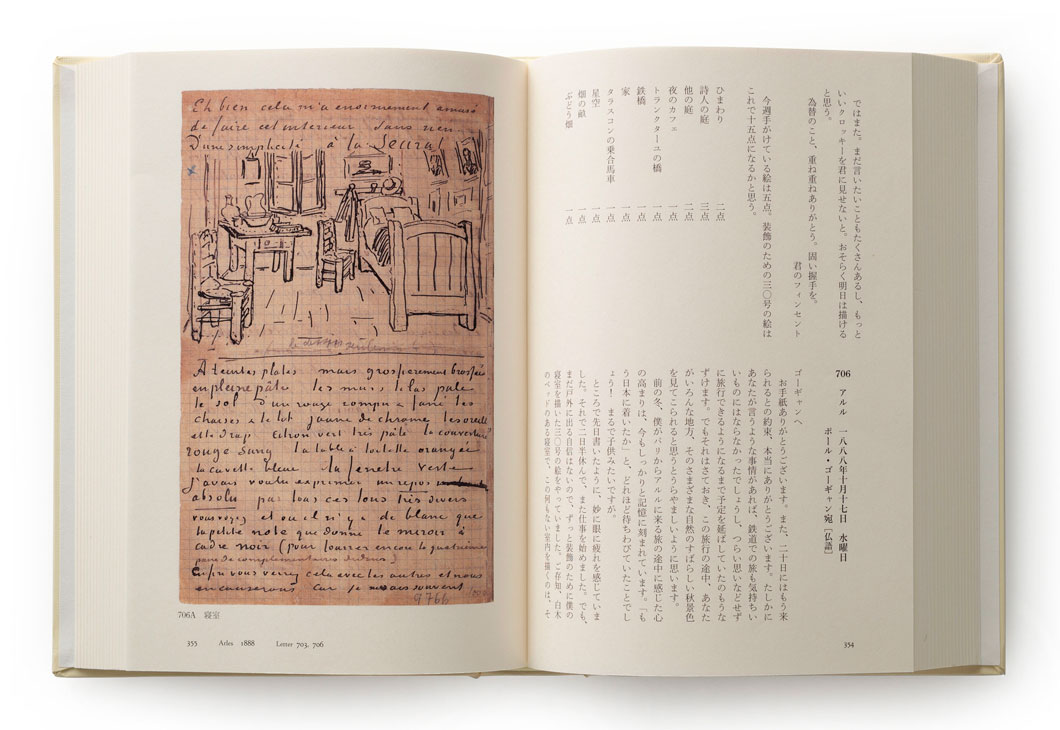 ではまた。まだ言いたいこともたくさんあるし、もっと
いいクロッキーを君に見せないと。おそらく明日は描ける
と思う。
為替のこと、重ね重ねありがとう。固い握手を。
君のフィンセント
今週手がけている絵は五点。装飾のための三〇号の絵は
これで十五点になるかと思う。
ひまわり 二点
詩人の庭 三点
他の庭 二点
夜のカフェ 一点
トランクターユの橋 一点
鉄橋 一点
家 一点
タラスコンの乗合馬車 一点
星空 一点
畑の畝 一点
ぶどう畑 一点
706 アルル 一八八八年十月十七日 水曜日
ポール・ゴーギャン宛[仏語]
ゴーギャンへ
お手紙ありがとうございます。また、二十日にはもう来
られるとの約束、本当にありがとうございます。たしかに
あなたが言うような事情があれば、鉄道での旅も気持ちい
いものにはならなかったでしょうし、つらい思いなどせず
に旅行できるようになるまで予定を延ばしていたのもうな
ずけます。でもそれはさておき、この旅行の途中、あなた
がいろんな地方、そのさまざまな自然のすばらしい秋景色
を見てこられると思うとうらやましいように思います。
前の冬、僕がパリからアルルに来る旅の途中に感じた心
の高まりは、今もしっかりと記憶に刻まれています。「も
う日本に着いたか」と、どれほど待ちわびていたことでし
ょう! まるで子供みたいですが。
ところで先日書いたように、妙に眼に疲れを感じていま
した。それで二日半休んで、また仕事を始めました。でも、
まだ戸外に出る自信はないので、ずっと装飾のために僕の
寝室を描いた三〇号の絵をやっていました。ご存知、白木
のベッドのある寝室で、この何もない室内を描くのは、そ
354
Eh bien cela m'a enormement amusé
de faire cet interieur sans rien.
D'une simplicité à la Seurat
à teintes plates mais grossierement brossées
en pleine pâte les murs lilas pale
le sol d'un rouge rompu & fané les
chaises & le lit jaune de chrome les oreillers
et le drap citron vert très pâle la couverture
rouge sang la table à toilette orangée
la cuvette bleue la fenetre verte
j'avais voulu exprimer un repos
absolu par tous ces tons très divers
vous voyez et ou il n'y a de blanc que
la petite note que donne le miroir à
cadre noir (pour fourrer encore la quatrieme
paire de complementaires dedans
Enfin vous verrez cela avec les autres et nous
en causerons car je ne sais souvent
9766
706A 寝室
355 Arles 1888 Letter 703, 706